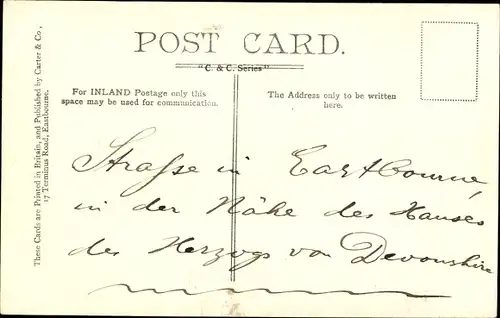 POST CARD.
"C. & C. Series"
For INLAND Postage only this
space may be used for communication.
The Address only to be written
here.
These Cards are Printed in Britain, and Published by Carter & Co.,
17 Terminus Road, Eastbourne.
Straße in Eastbourne,
in der Nähe des Hauses
des Herzogs von Devonshire